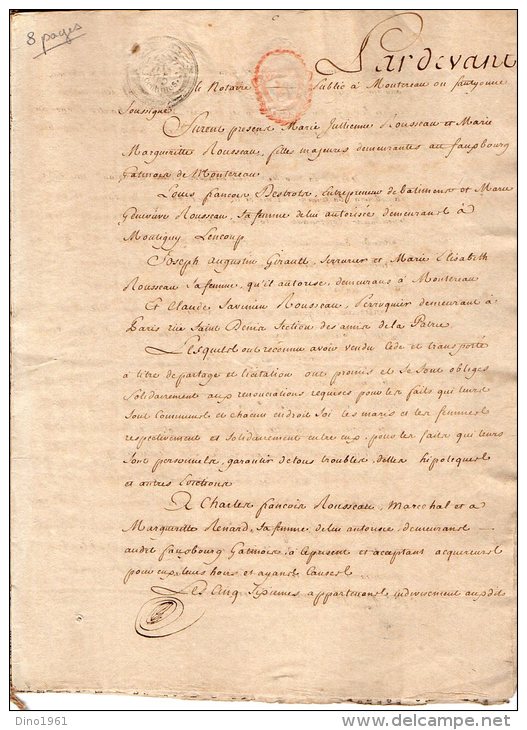 8 pages
Pardevant
le Notaire Public à Montereau ou fautyonne
Soussigné
Furent presens Marie Julienne Rousseau et Marie
Margueritte Rousseau, filles majeures demeurantes au fauxbourg
Gatinois de Montereau
Louis francois Destrotte, Entrepreneur de batimens et Marie
Genevieve Rousseau, sa femme de lui autorisée demeurans à
Montigny Lencoup
Joseph Augustin Girault, Serrurier et Marie Elisabeth
Rousseau sa femme, qu'il autorise, demeurans à Montereau
Et Claude Savinien Rousseau, Perruquier demeurant à
Paris rue Saint Denis Section des amis de la Patrie
Lesquels ont reconnu avoir vendu cédé et transporté
à titre de partage et licitation ont promis et se sont obligés
Solidairement aux renonciations requises pour les faits qui leurs
sont Communs et chacun endroit soi les maris et les femmes
respectivement et solidairement entre eux, pour les faits qui leurs
sont personnels, garantir de tous troubles, dettes hipoteques
et autres Evictions
A Charles francois Rousseau, Marechal et a
Margueritte Renard, sa femme de lui autorisée, demeurans
audit fauxbourg Gatinois, à ce present et acceptant acquereurs
pour eux, leurs hoirs, et ayans Causes
Les Cinq Sixiemes appartenans indivisement auxdits
Dino1961
www.delcampe.net